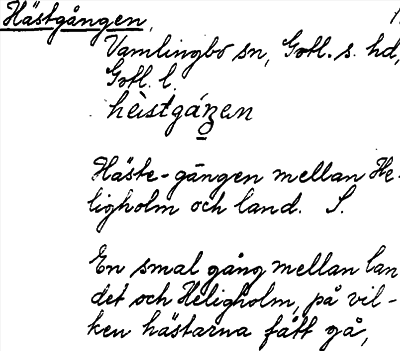 Hästgången,
Vamlingbo sn, Gotl. s. hd,
Gotl. l.
Häste-gången mellan He-
ligholm och land. S.
En smal gång mellan lan
det och Heligholm, på vil-
ken hästarna fått gå,